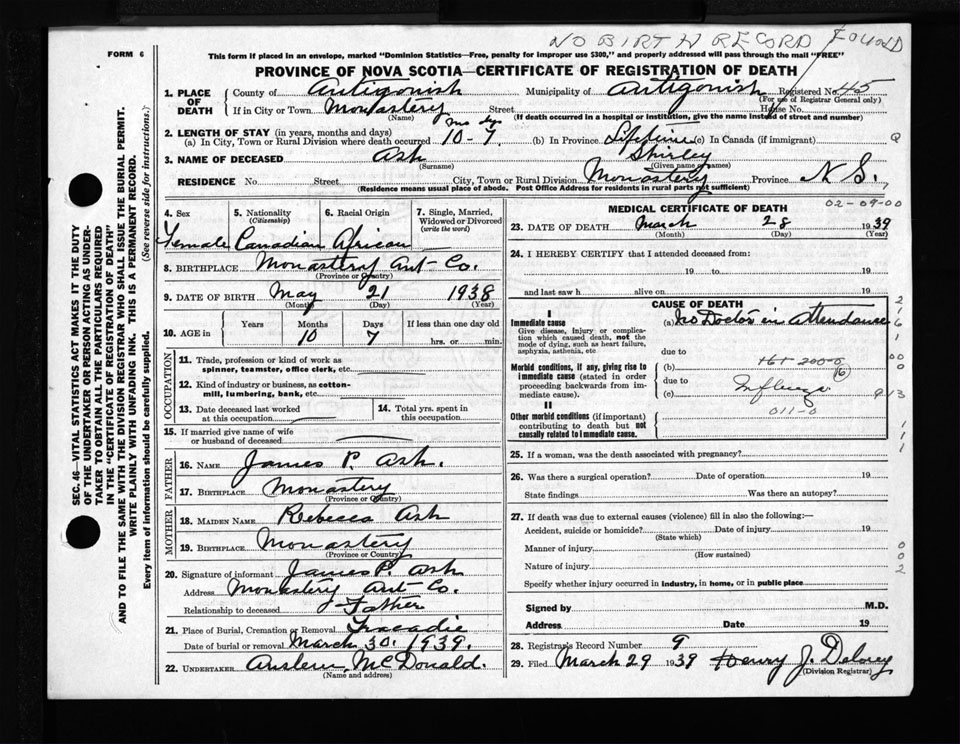 NO BIRTH RECORD FOUND
FORM 6
This form if placed in an envelope, marked "Dominion Statistics—Free, penalty for improper use $300," and properly addressed will pass through the mail "FREE"
PROVINCE OF NOVA SCOTIA—CERTIFICATE OF REGISTRATION OF DEATH
1. PLACE OF DEATH County of Antigonish Municipality of Antigonish Registered No. 45
(For use of Registrar General only)
If in City or Town Monastery Street House No.
(Name) (If death occurred in a hospital or institution, give the name instead of street and number)
2. LENGTH OF STAY (in years, months and days) mo dys
(a) In City, Town or Rural Division where death occurred 10-7 (b) In Province Lifetime (c) In Canada (if immigrant)
3. NAME OF DECEASED Ash Shirley
(Surname) (Given name or names)
RESIDENCE No Street City, Town or Rural Division Monastery Province N S.
(Residence means usual place of abode. Post Office Address for residents in rural parts not sufficient)
02-09-00
4. Sex 5. Nationality 6. Racial Origin 7. Single, Married, Widowed or Divorced
(Citizenship) (write the word)
Female Canadian African
8. BIRTHPLACE Monastery Ant-Co.
(Province or Country)
9. DATE OF BIRTH May 21 1938
(Month) (Day) (Year)
10. AGE in Years Months Days If less than one day old
10 7 hrs. or min.
OCCUPATION
11. Trade, profession or kind of work as spinner, teamster, office clerk, etc.
12. Kind of industry or business, as cotton-mill, lumbering, bank, etc.
13. Date deceased last worked at this occupation
14. Total yrs. spent in this occupation
15. If married give name of wife or husband of deceased
FATHER
16. NAME James P. Ash.
17. BIRTHPLACE Monastery
(Province or Country)
MOTHER
18. MAIDEN NAME Rebecca Ash
19. BIRTHPLACE Monastery
(Province or Country)
20. Signature of informant James P. Ash
Address Monastery Ant-Co.
Relationship to deceased Father
21. Place of Burial, Cremation or Removal Tracadie
Date of burial or removal March 30. 1939.
22. UNDERTAKER Auslem McDonald.
(Name and address)
MEDICAL CERTIFICATE OF DEATH
23. DATE OF DEATH March 28 1939
(Month) (Day) (Year)
24. I HEREBY CERTIFY that I attended deceased from:
19 to 19
and last saw h alive on 19
CAUSE OF DEATH
I
Immediate cause (a) No Doctor in Attendance
Give disease, injury or complication which caused death, not the mode of dying, such as heart failure, asphyxia, asthenia, etc
due to
Morbid conditions, if any, giving rise to immediate cause (stated in order proceeding backwards from immediate cause).
(b)
due to
(c)
II
011-0
Other morbid conditions (if important) contributing to death but not causally related to immediate cause.
25. If a woman, was the death associated with pregnancy?
26. Was there a surgical operation? Date of operation 19
State findings Was there an autopsy?
27. If death was due to external causes (violence) fill in also the following:—
Accident, suicide or homicide? Date of injury 19
(State which)
Manner of injury
(How sustained)
Nature of injury
Specify whether injury occurred in industry, in home, or in public place
Signed by M.D.
Address Date 19
28. Registrar's Record Number 9
29. Filed March 29 1939 Henry J. Delorey
(Division Registrar)
SEC. 46—VITAL STATISTICS ACT MAKES IT THE DUTY
OF THE UNDERTAKER OR PERSON ACTING AS UNDER-
TAKER TO OBTAIN ALL THE PARTICULARS REQUIRED
IN THE "CERTIFICATE OF REGISTRATION OF DEATH"
AND TO FILE THE SAME WITH THE DIVISION REGISTRAR WHO SHALL ISSUE THE BURIAL PERMIT.
WRITE PLAINLY WITH UNFADING INK. THIS IS A PERMANENT RECORD.
Every item of information should be carefully supplied. (See reverse side for instructions.)